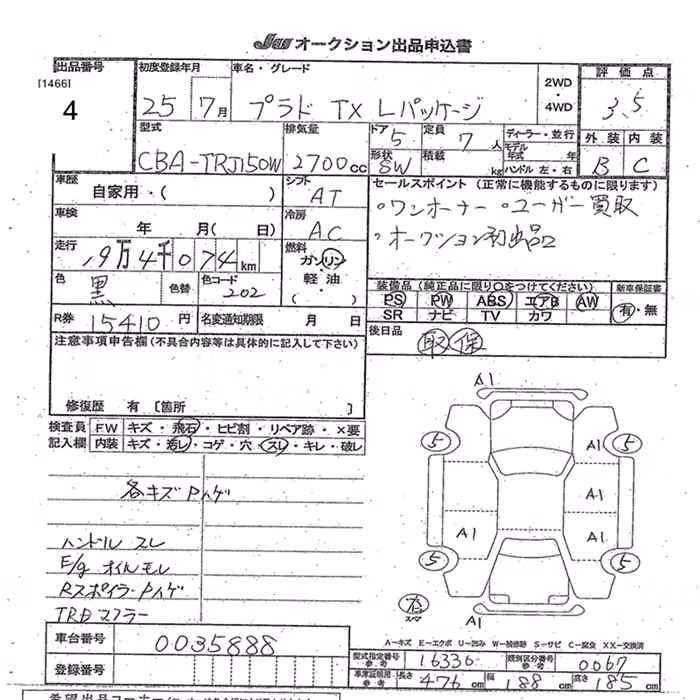 JU オークション出品申込書
出品番号 初度登録年月 車名・グレード 2WD・4WD 評価点
[1466]
4 25 7月 プラド TX Lパッケージ 3.5
型式 排気量 ドア 5 定員 7人 ディーラー・並行 外装 内装
CBA-TRJ150W 2700cc 形状 SW 積載 kg モデル年式 年式 B C
ハンドル 左・右
車歴 自家用・( ) シフト AT セールスポイント (正常に機能するものに限ります)
車検 年 月( 日) 冷房 AC ○ワンオーナー ○ユーザー買取
走行 19万4千074km 燃料 ガソリン 軽油 ・( ) ・オークション初出品
色 黒 色替 色コード 202 装備品 (純正品に限り○をつけてください) 新車保証書
PS PW ABS エアB AW 有・無
SR ナビ TV カワ
R券 15410円 名変通知期限 月 日 後日品 取 保
注意事項申告欄 (不具合内容等は具体的に記入して下さい)
修復歴 有 [箇所 ]
検査員 FW キズ・飛石・ヒビ割・リペア跡・×要
記入欄 内装 キズ・汚レ・コゲ・穴・スレ・キレ・破レ
A1
5 5
A1
A1
A1 A1
5 5
スペア
A1
各キズPハゲ
ハンドル スレ
E/g オイルモレ
RスポイラーPハゲ
TRDマフラー
A－キズ E－エクボ U－凹み W－補修跡 S－サビ C－腐食 XX－交換済
車台番号 0035888 型式指定番号 参考 16336 類別区分番号 参考 0067
登録番号 車庫証明用 参考 長さ 476cm 幅 188cm 高さ 185cm